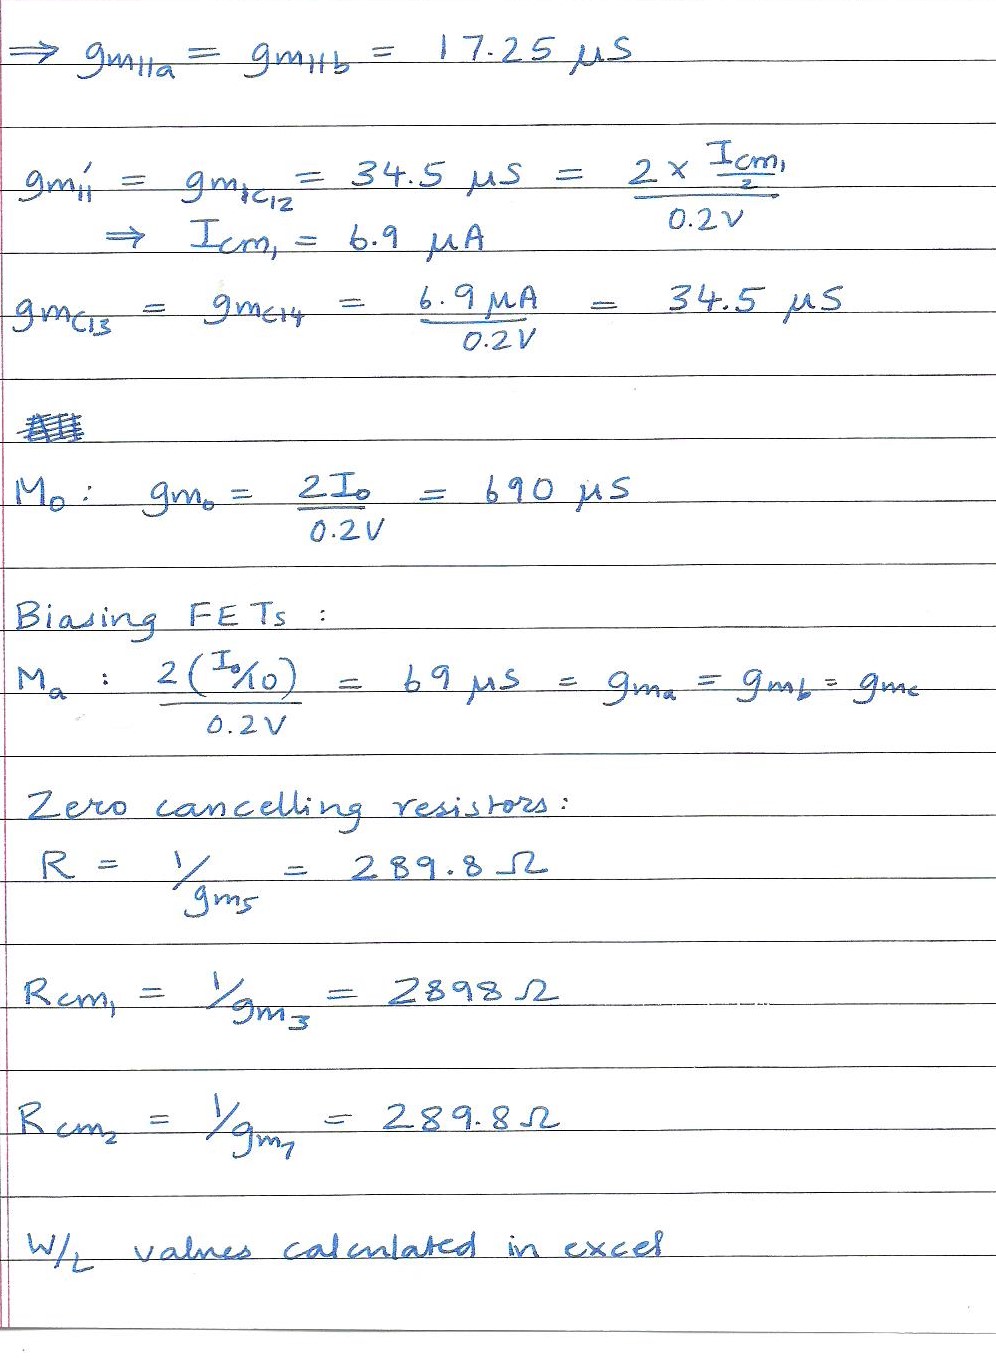 ⇒ gm11a = gm11b = 17.25 μS
gm11' = gm1c12 = 34.5 μS = (2 × Icm1/2) / 0.2V
⇒ Icm1 = 6.9 μA
gmc13 = gmc14 = 6.9 μA / 0.2V = 34.5 μS
M0 : gm0 = 2I0 / 0.2V = 690 μS
Biasing FETs :
Ma : 2(I0/10) / 0.2V = 69 μS = gma = gmb = gmc
Zero cancelling resistors :
R = 1/gm5 = 289.8 Ω
Rcm1 = 1/gm3 = 2898 Ω
Rcm2 = 1/gm7 = 289.8 Ω
W/L values calculated in excel